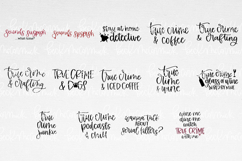 sounds suspish
sounds suspish
stay at home
detective
true crime
& coffee
true crime
& crafting
true crime
& crafting
TRUE CRIME
& DOGS
true crime
& ICED COFFEE
true
crime
& wine
true crime
glass of wine
true
crime
junkie
true crime
podcasts
& chill
wanna talk
about
serial killers?
wine me
dine me
watch
TRUE CRIME
with me